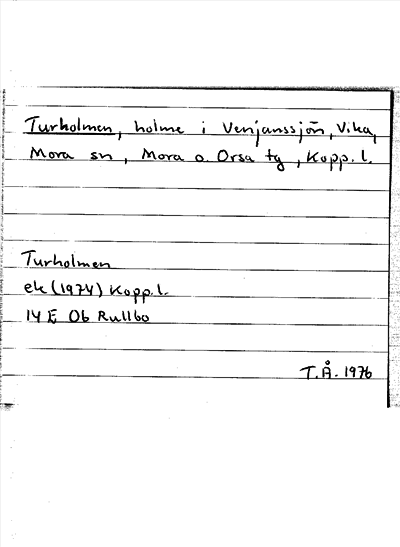 Turholmen, holme i Venjanssjön, Vika,
Mora sn, Mora o. Orsa tg, Kopp. l.
Turholmen
ek (1974) Kopp. l.
14 E Ob Rullbo
T.Å. 1976